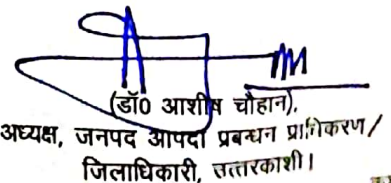 (डॉ0 आशीष चौहान),
अध्यक्ष, जनपद आपदा प्रबन्धन प्राधिकरण/
जिलाधिकारी, उत्तरकाशी।